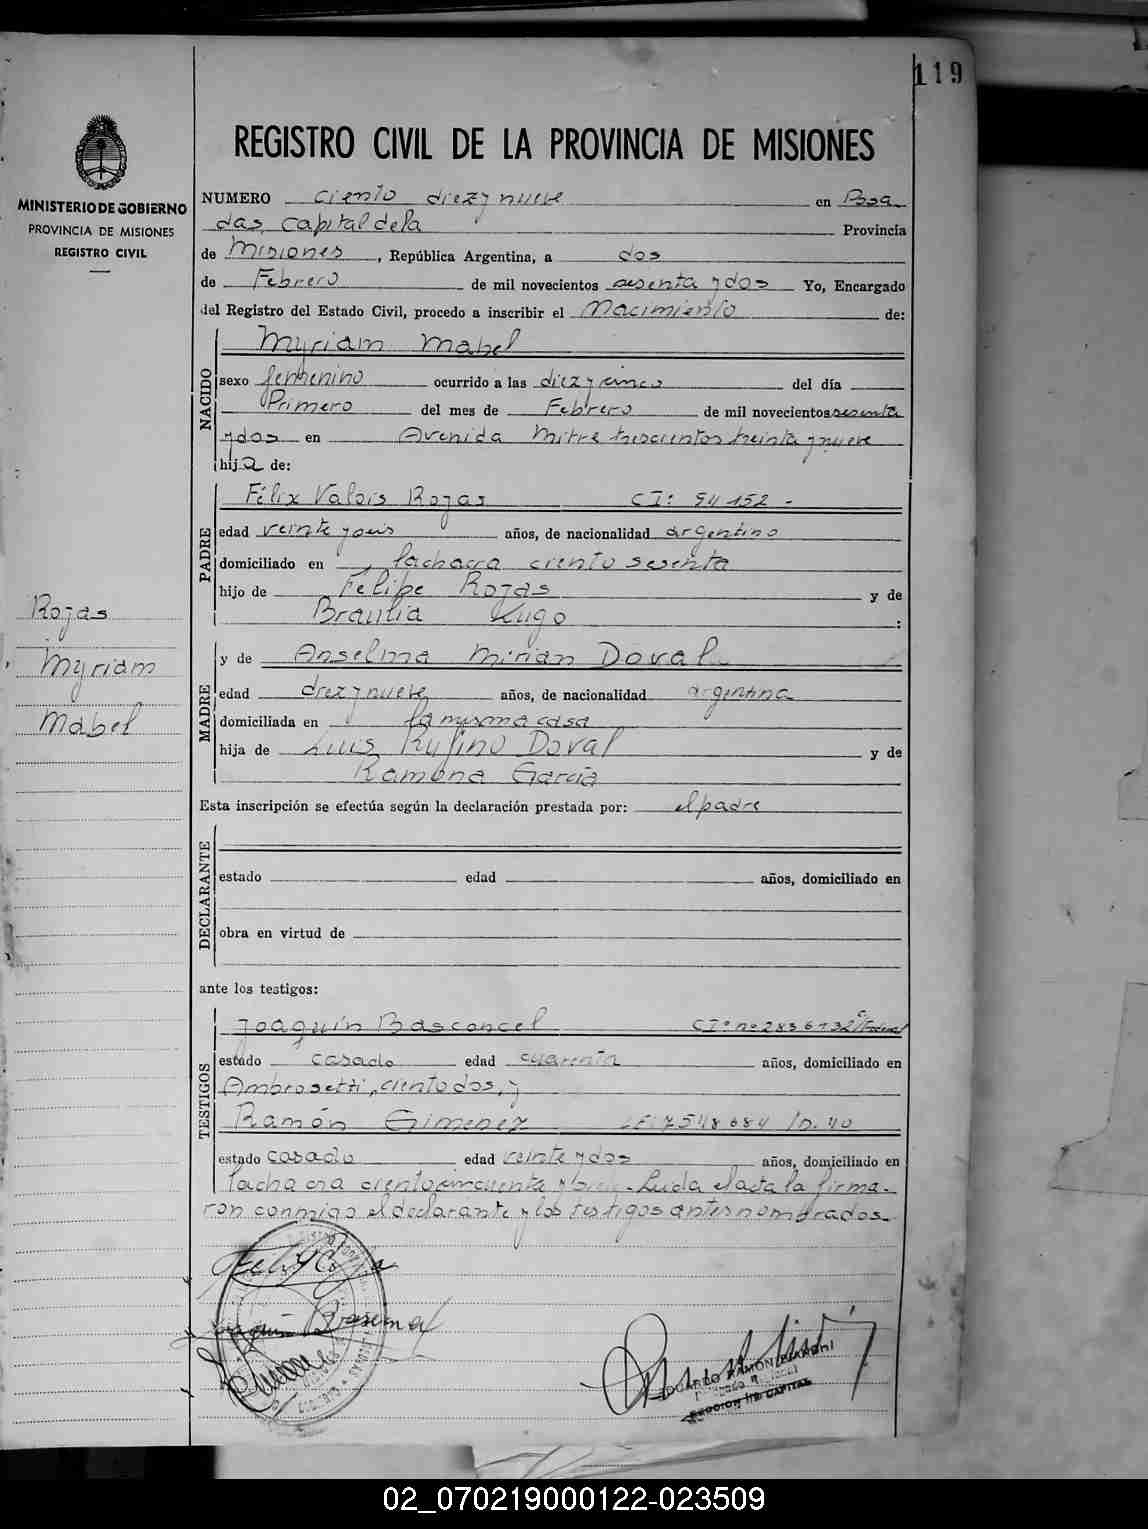 119
REGISTRO CIVIL DE LA PROVINCIA DE MISIONES
MINISTERIO DE GOBIERNO
PROVINCIA DE MISIONES
REGISTRO CIVIL
NUMERO ciento diez y nueve en Posa
das, Capital de la Provincia
de Misiones, República Argentina, a dos
de Febrero de mil novecientos sesenta y dos Yo, Encargado
del Registro del Estado Civil, procedo a inscribir el Nacimiento de:
NACIDO
Myriam Mabel
sexo femenino ocurrido a las diez y cinco del día
Primero del mes de Febrero de mil novecientos sesenta
y dos en Avenida Mitre trescientos treinta y nueve
hija de:
PADRE
Félix Valois Rojas CI: 94152-
edad veinte y seis años, de nacionalidad argentino
domiciliado en la chacra ciento sesenta
hijo de Felipe Rojas y de
Braulia Lugo :
Rojas
Myriam
Mabel
MADRE
y de Anselma Mirian Doval
edad diez y nueve años, de nacionalidad argentina
domiciliada en la misma casa
hija de Luis Rufino Doval y de
Ramona García
Esta inscripción se efectúa según la declaración prestada por: el padre
DECLARANTE
estado edad años, domiciliado en
obra en virtud de
ante los testigos:
TESTIGOS
Joaquín Basconcel CI: nº 2836732 Federal
estado casado edad cuarenta años, domiciliado en
Ambrosetti, ciento dos, y
Ramón Gimenez LE: 7548684 /D. 40
estado casado edad veinte y dos años, domiciliado en
la chacra ciento cincuenta y Leída el acta la firma-
ron conmigo el declarante y los testigos antes nombrados.
EDUARDO RAMON BIANCHI
SECCION CAPITAL
02_070219000122-023509